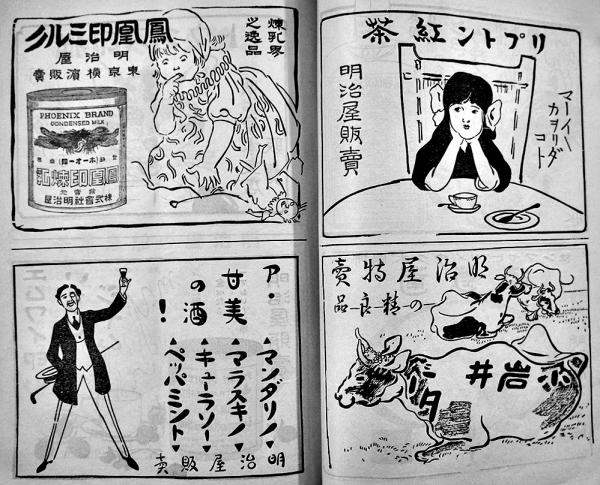 リプトン紅茶
マーイー
カヲリダ
コト
明治屋販賣
明治屋特賣
一の精良品
小岩井
バタ
煉乳界
之逸品
鳳凰印ミルク
明治屋
東京横濱販賣
PHOENIX BRAND
CONDENSED MILK
鳳凰印煉乳
發賣元
株式會社明治屋
ア・
甘美
の酒
！
マンダリン
マラスキノ
キューラソー
ペッパミント
明治屋販賣